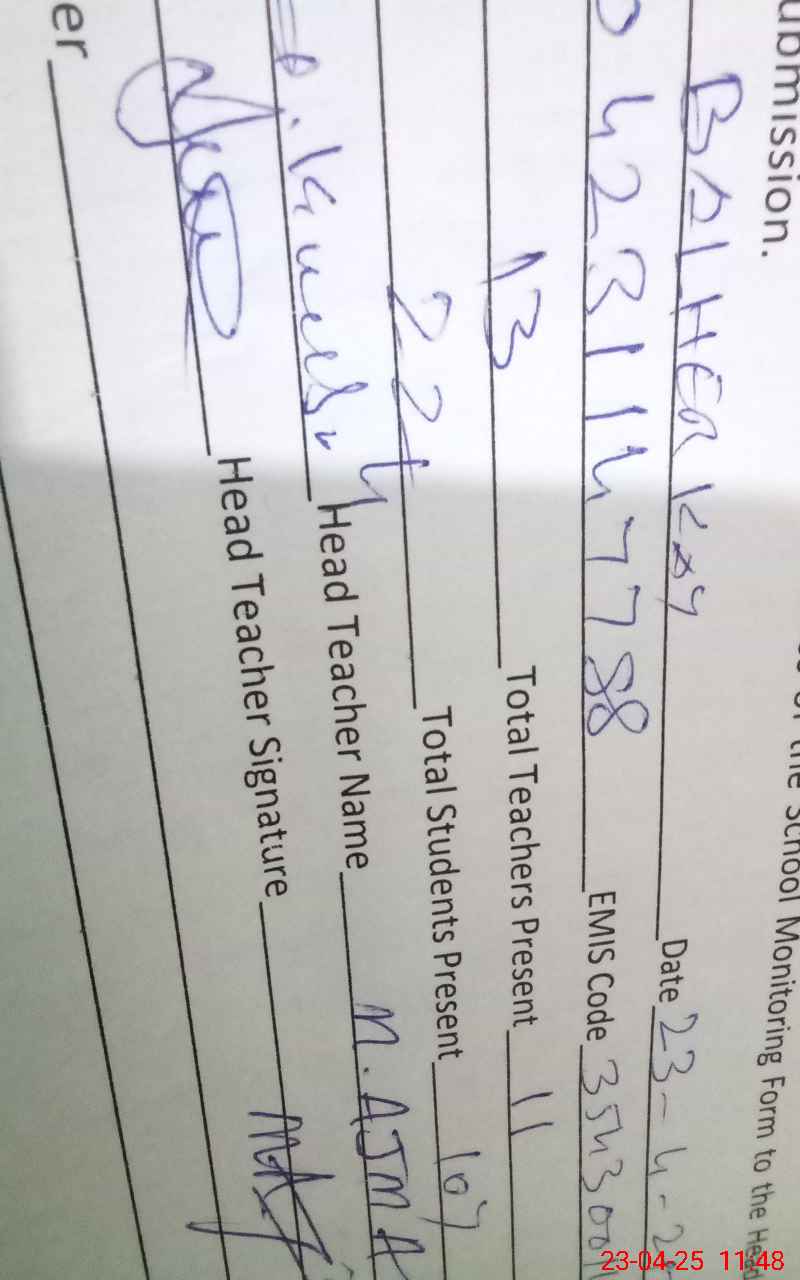 ubmission.
of the School Monitoring Form to the Head
BALHER Date 23-4-2
04231147788 EMIS Code 354300
13 Total Teachers Present 11
224 Total Students Present 107
Head Teacher Name M.AJMA
Head Teacher Signature
er
23-04-25 11:48